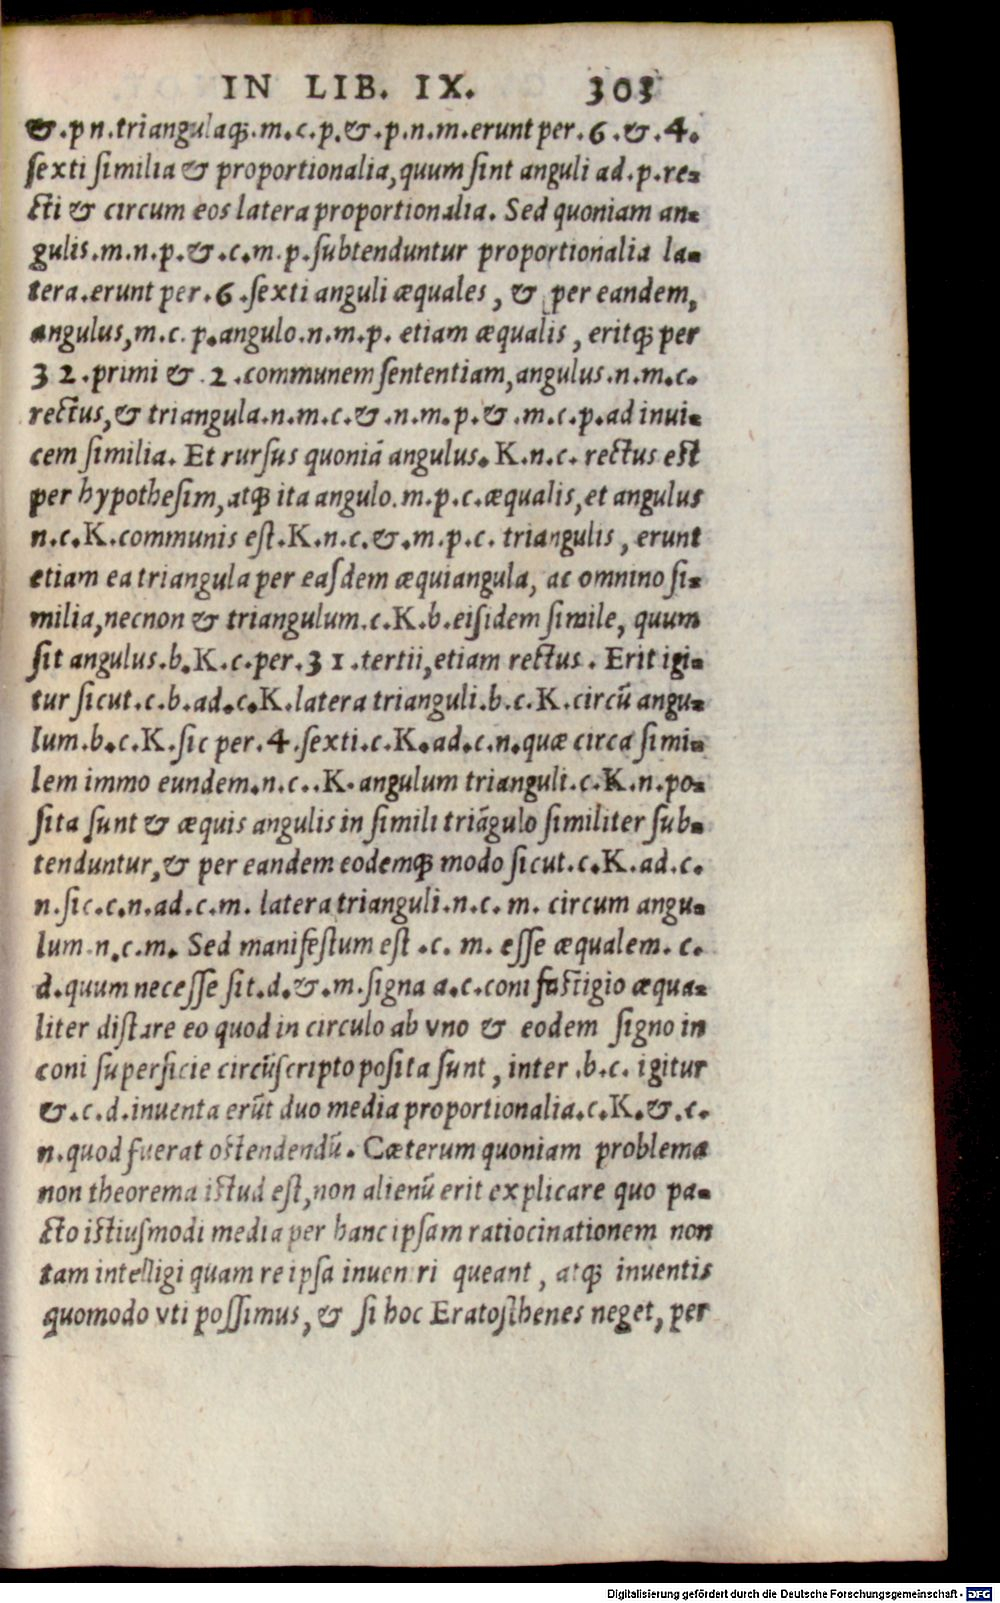 IN LIB. IX. 303
&.p n.triangulaq́;.m.c.p.&.p.n.m.erunt per.6.&.4.
sexti similia & proportionalia, quum sint anguli ad.p.re-
cti & circum eos latera proportionalia. Sed quoniam an-
gulis.m.n.p.&.c.m.p.subtenduntur proportionalia la-
tera.erunt per.6.sexti anguli æquales, & per eandem,
angulus, m.c.p.angulo.n.m.p. etiam æqualis, eritq́; per
32.primi &.2.communem sententiam, angulus.n.m.c.
rectus, & triangula.n.m.c.&.n.m.p.&.m.c.p.ad inui-
cem similia. Et rursus quoniā angulus.K.n.c. rectus est
per hypothesim, atq́; ita angulo.m.p.c.æqualis, et angulus
n.c.K.communis est.K.n.c.&.m.p.c. triangulis, erunt
etiam ea triangula per easdem æquiangula, ac omnino si-
milia, necnon & triangulum.c.K.b.eisidem simile, quum
sit angulus.b.K.c.per.31.tertii, etiam rectus. Erit igi-
tur sicut.c.b.ad.c.K.latera trianguli.b.c.K.circū angu-
lum.b.c.K.sic per.4.sexti.c.K.ad.c.n.quæ circa simi-
lem immo eundem.n.c..K.angulum trianguli.c.K.n.po-
sita sunt & æquis angulis in simili triāgulo similiter sub-
tenduntur, & per eandem eodemq́; modo sicut.c.K.ad.c.
n.sic.c.n.ad.c.m. latera trianguli.n.c.m. circum angu-
lum.n.c.m. Sed manifestum est.c. m. esse æqualem. c.
d.quum necesse sit.d.&.m.signa a.c.coni fastigio æqua-
liter distare eo quod in circulo ab vno & eodem signo in
coni superficie circūscripto posita sunt, inter.b.c. igitur
&.c.d.inuenta erūt duo media proportionalia.c.K.&.c.
n.quod fuerat ostendendū. Cæterum quoniam problema
non theorema istud est, non alienū erit explicare quo pa-
cto istiusmodi media per hanc ipsam ratiocinationem non
tam intelligi quam re ipsa inueniri queant, atq́; inuentis
quomodo vti possimus, & si hoc Eratosthenes neget, per
Digitalisierung gefördert durch die Deutsche Forschungsgemeinschaft - DFG